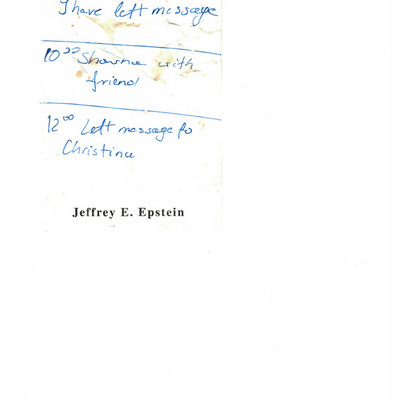 I have left message
10³⁰ Shawna with
friend
12⁰⁰ Left message fo
Christina
Jeffrey E. Epstein